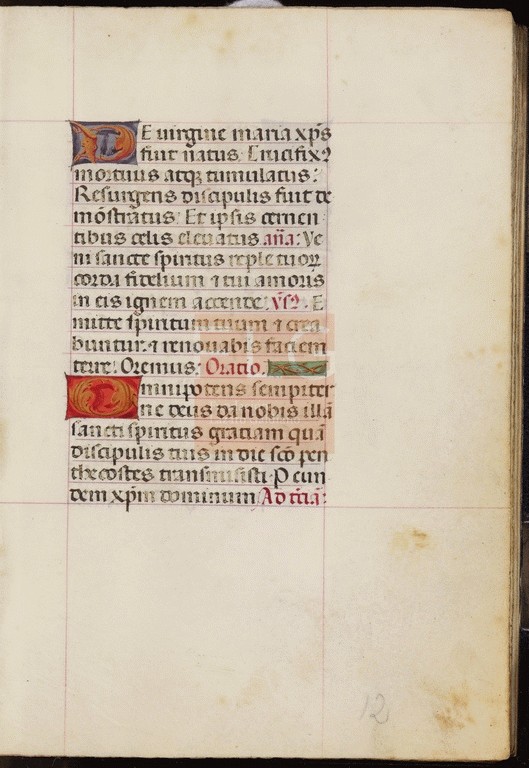 DE virgine maria xp̄s
fuit natus. Crucifixꝰ
mortuus atqꝫ tumulatus:
Resurgens discipulis fuit de
mōstratus: Et ipsis cernen
tibus celis eleuatus aña: Ve
ni sancte spiritus reple tuoꝝ
corda fidelium ⁊ tui amoris
in eis ignem accende: v̄s. E
mitte spiritum tuum ⁊ crea
buntur. ⁊ renouabis faciem
terre. Oremus: Oratio.
Omnipotens sempiter
ne deus da nobis illā
sancti spiritus gratiam quā
discipulis tuis in die scō pen
thecostes transmisisti. P eun
dem xp̄m dominum Ad t̄ciā:
12